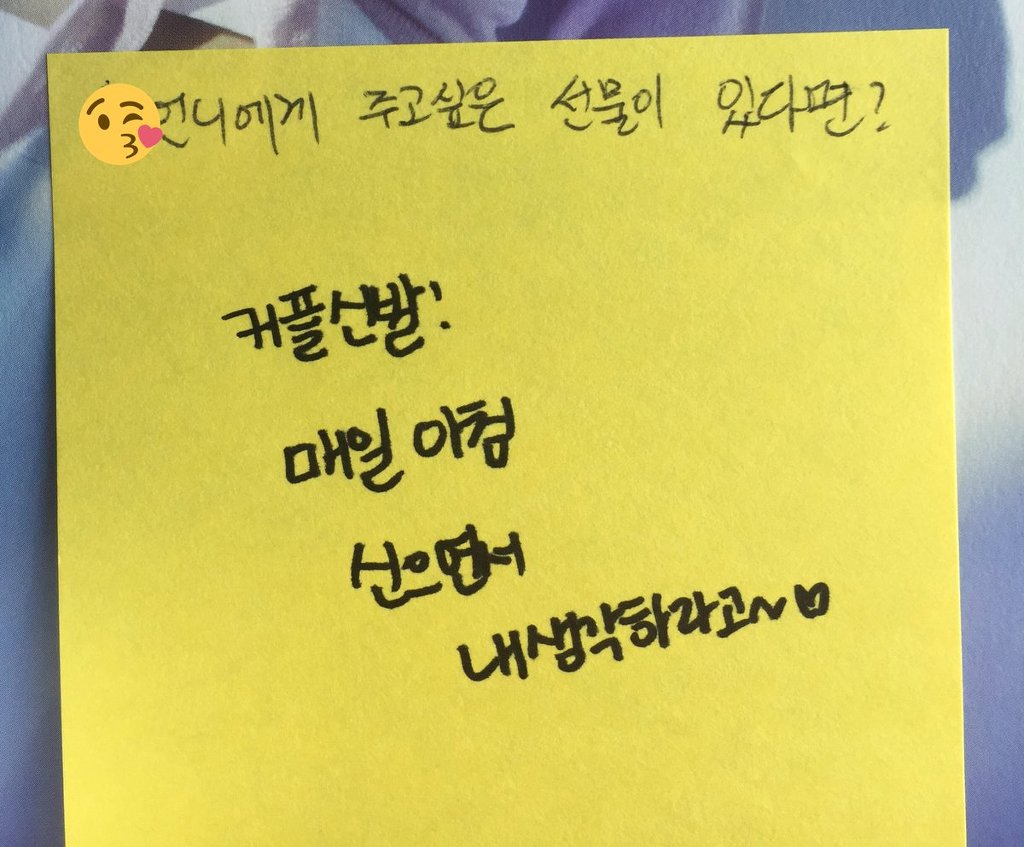 언니에게 주고싶은 선물이 있다면?
커플신발!
매일 아침
신으면서
내생각하라고~♡